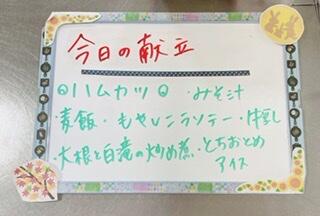 今日の献立
◎ハムカツ◎ ・みそ汁
・麦飯 ・もやしソテー ・牛乳
・大根と白滝の炒め煮 ・とちおとめ
アイス